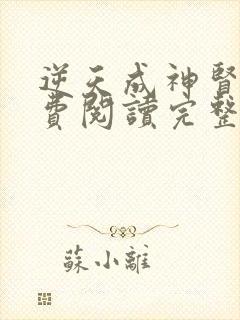 逆天成神醫
費閱讀完整
蘇小離